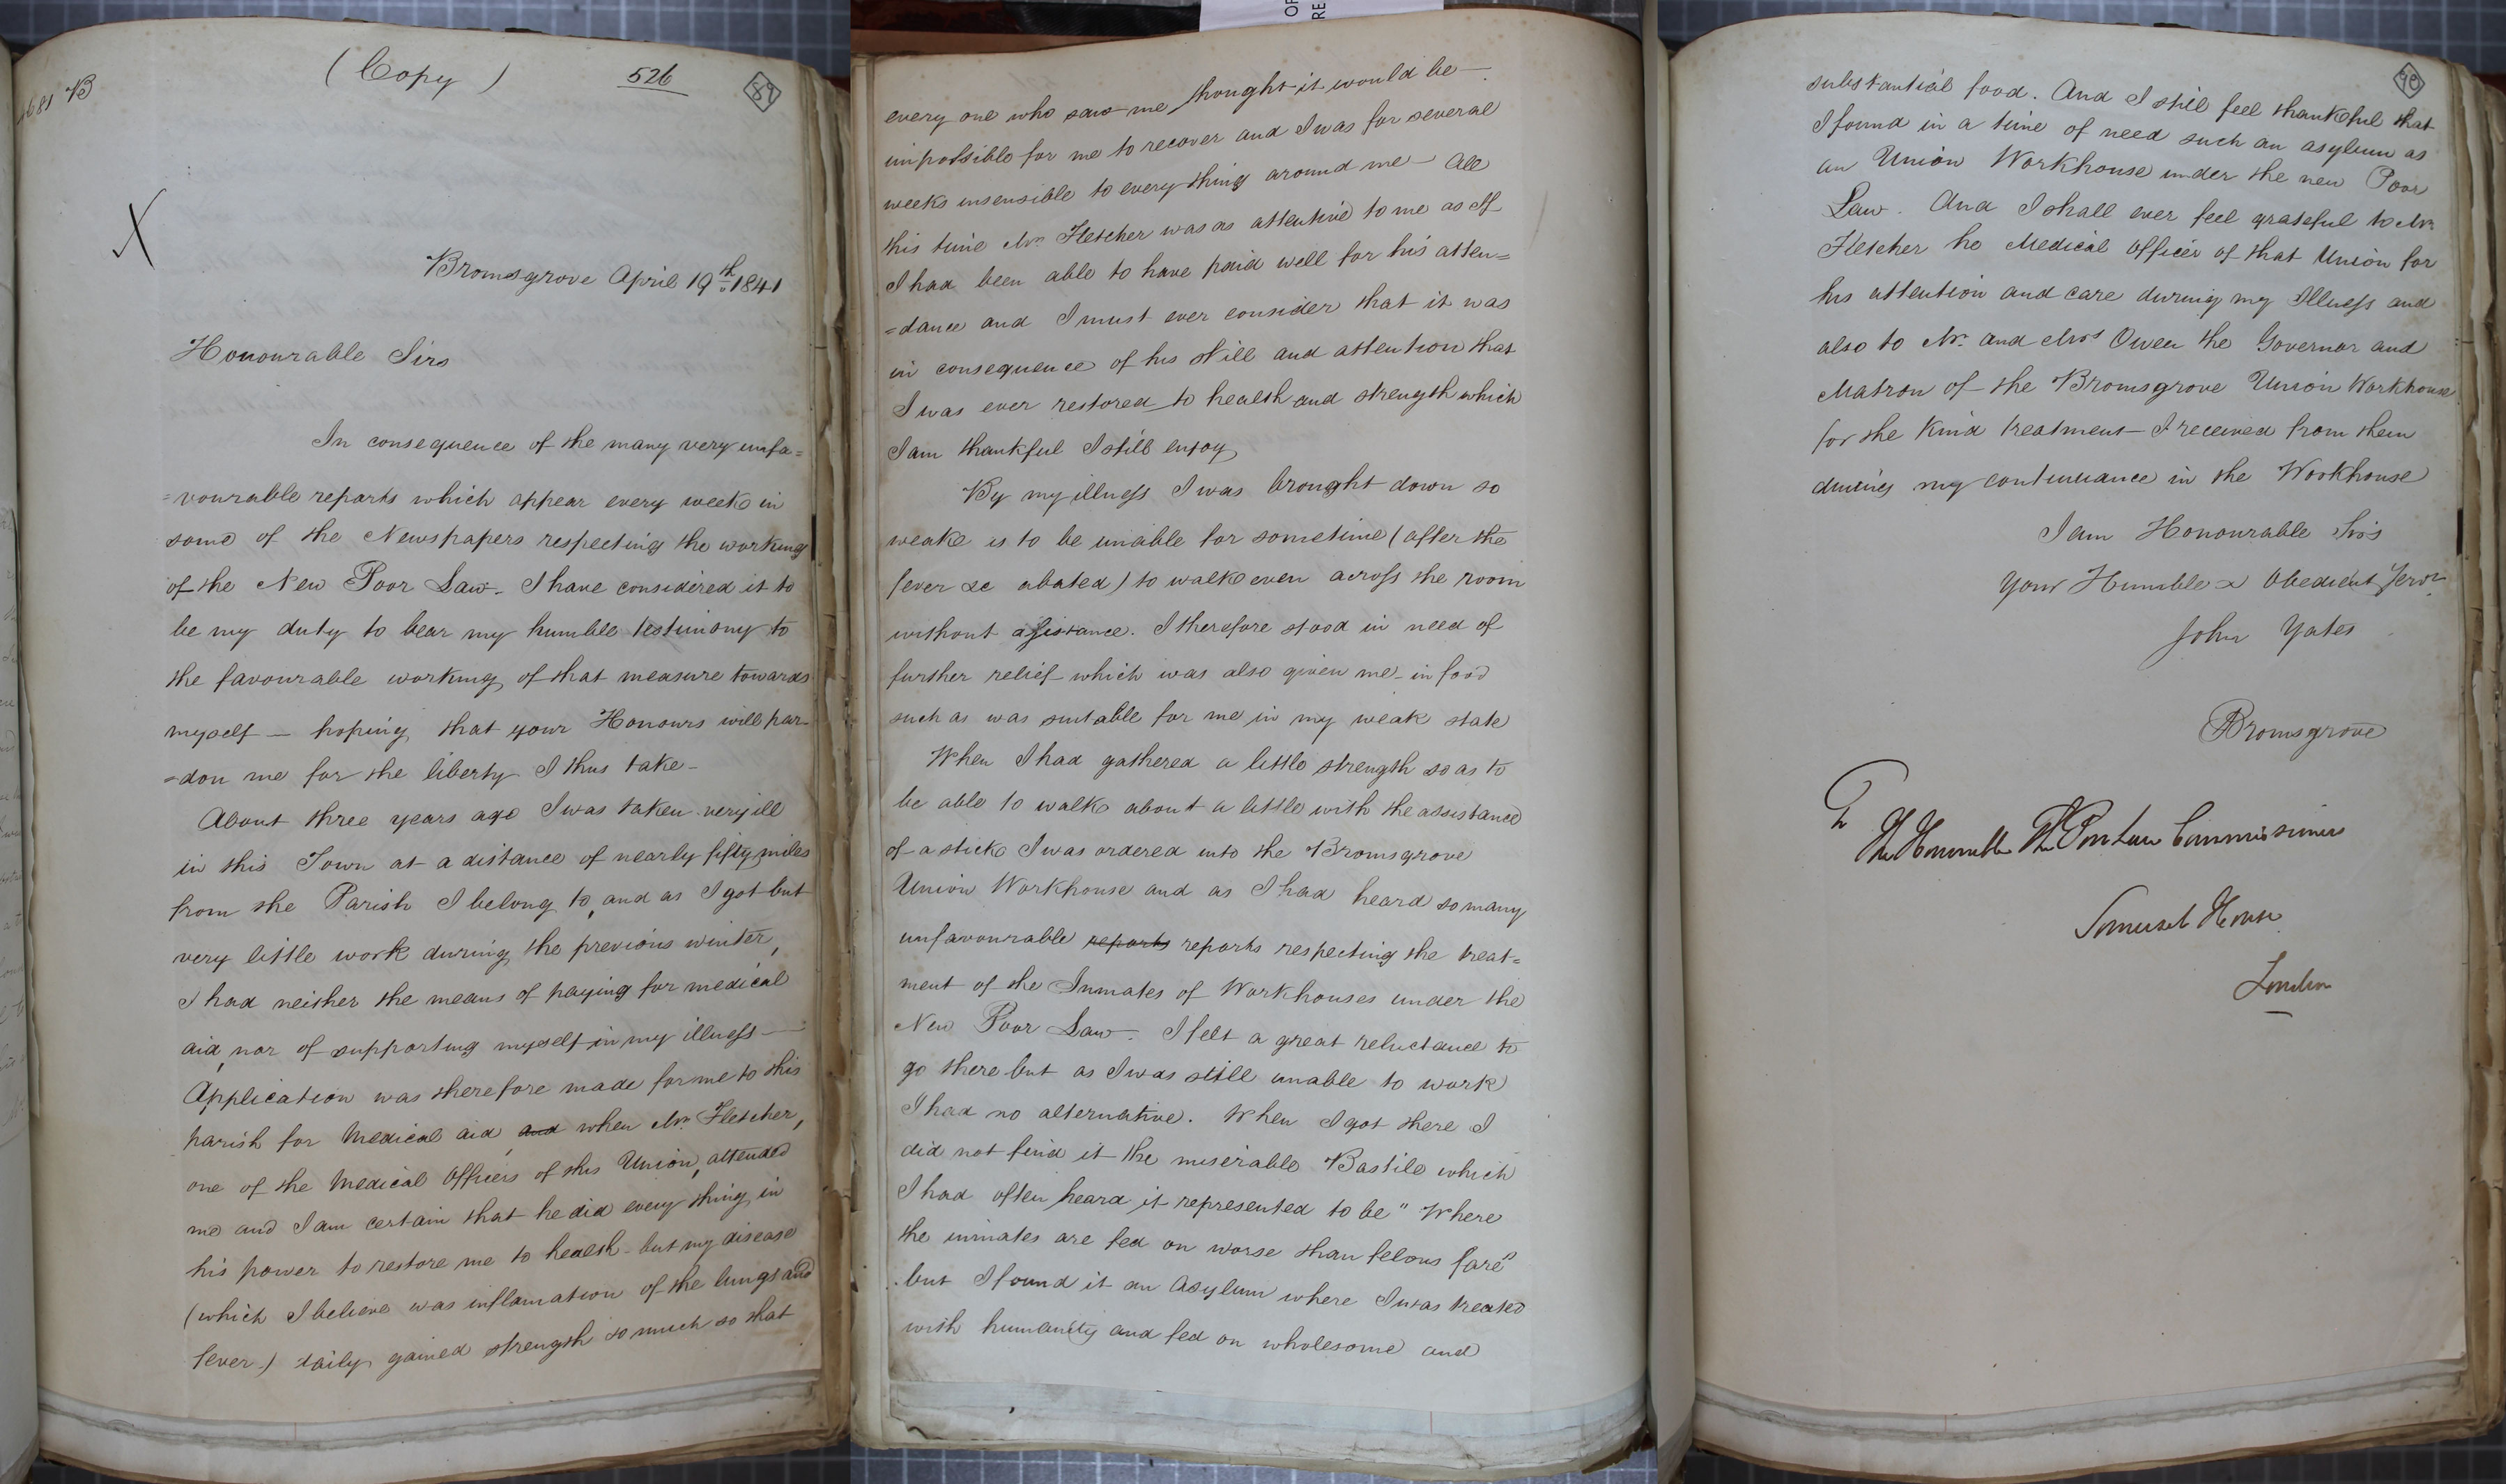 4681 B
( Copy )
526
89
X
Bromsgrove April 19th 1841
Honourable Sirs
In consequence of the many very unfa=
=vourable reports which appear every week in
some of the Newspapers respecting the working
of the New Poor Law - I have considered it to
be my duty to bear my humble testimony to
the favourable working of that measure towards
myself — hoping that your Honours will par-
=don me for the liberty I thus take -
About three years ago I was taken very ill
in this Town at a distance of nearly fifty miles
from the Parish I belong to, and as I got but
very little work during the previous winter,
I had neither the means of paying for medical
aid, nor of supporting myself in my illness —
Application was therefore made for me to this
parish for Medical aid, and when Mr. Fletcher,
one of the Medical Officers of this Union, attended
me and I am certain that he did every thing in
his power to restore me to health - but my disease
(which I believe was inflamation of the lungs and
fever) daily gained strength so much so that
OF
RE
every one who saw me thought it would be —
impossible for me to recover and I was for several
weeks insensible to every thing around me — All
this time Mr. Fletcher was as attentive to me as If
I had been able to have paid well for his atten=
=dance and I must ever consider that it was
in consequence of his skill and attention that
I was ever restored to health and strength which
I am thankful I still enjoy
By my illness I was brought down so
weak as to be unable for sometime (after the
fever &c abated) to walk even across the room
without assistance. I therefore stood in need of
further relief which was also given me - in food
such as was suitable for me in my weak state
When I had gathered a little strength so as to
be able to walk about a little with the assistance
of a stick I was ordered into the Bromsgrove
Union Workhouse and as I had heard so many
unfavourable reports reports respecting the treat=
ment of the Inmates of Workhouses under the
New Poor Law - I felt a great reluctance to
go there but as I was still unable to work
I had no alternative. When I got there I
did not find it the miserable Bastile which
I had often heard it represented to be "Where
the inmates are fed on worse than felons fare"
but I found it an Asylum where I was treated
with humanity and fed on wholesome and
90
substantial food. And I still feel thankful that
I found in a time of need such an asylum as
an Union Workhouse under the new Poor
Law. And I shall ever feel grateful to Mr.
Fletcher he Medical Officer of that Union for
his attention and care during my Illness and
also to Mr. and Mrs Owen the Governor and
Matron of the Bromsgrove Union Workhouse
for the kind treatment I received from them
during my continuance in the Workhouse
I am Honourable Sirs
Your Humble & Obedient Servt.
John Yates
Bromsgrove
To
The Honourable The Poor Law Commissioners
Somerset House
London